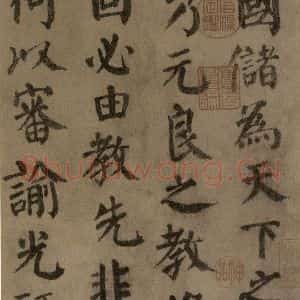 國儲為天下之
乃元良之教
固必由教先非
何以審諭光
Shufawang.CN